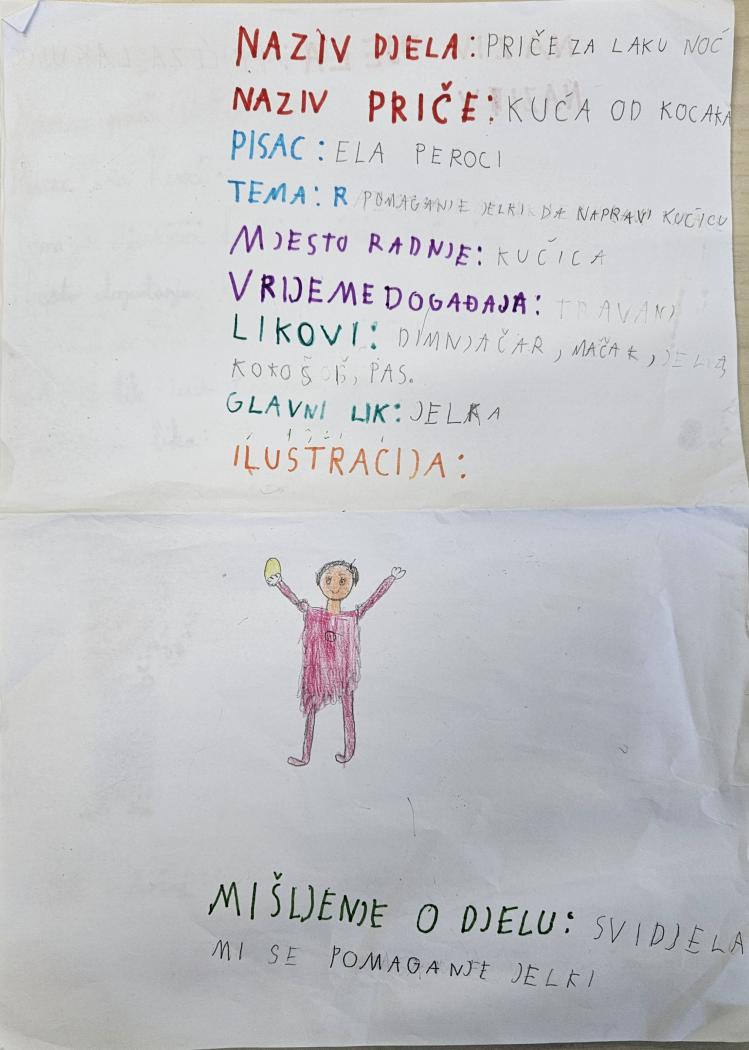 NAZIV DJELA: PRIČE ZA LAKU NOĆ
NAZIV PRIČE: KUĆA OD KOCAKA
PISAC: ELA PEROCI
TEMA: R POMAGANJE JELKI DA NAPRAVI KUĆICU
MJESTO RADNJE: KUČICA
VRIJEME DOGAĐAJA: TRAVANJ
LIKOVI: DIMNJAČAR, MAČAK, JELKA
KOKOŠ, PAS.
GLAVNI LIK: JELKA
ILUSTRACIJA:
MIŠLJENJE O DJELU: SVIDJELA
MI SE POMAGANJE JELKI